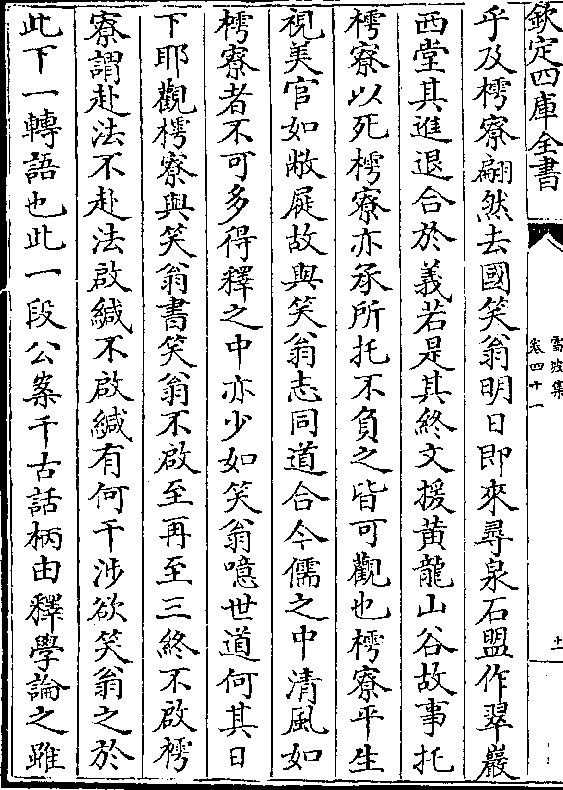 欽定四庫全書
雪坡集
卷四十一
十一
乎及樗寮翩然去國笑翁明日即來尋泉石盟作翠巖
西堂其進退合於義若是其終文援黃龍山谷故事托
樗寮以死樗寮亦承所托不負之皆可觀也樗寮平生
視美官如敝屣故與笑翁志同道合今儒之中清風如
樗寮者不可多得釋之中亦少如笑翁噫世道何其日
下耶觀樗寮與笑翁書笑翁不啟至再至三終不啟樗
寮謂赴法不赴法啟緘不啟緘有何干涉欲笑翁之於
此下一轉語也此一段公案千古話柄由釋學論之雖